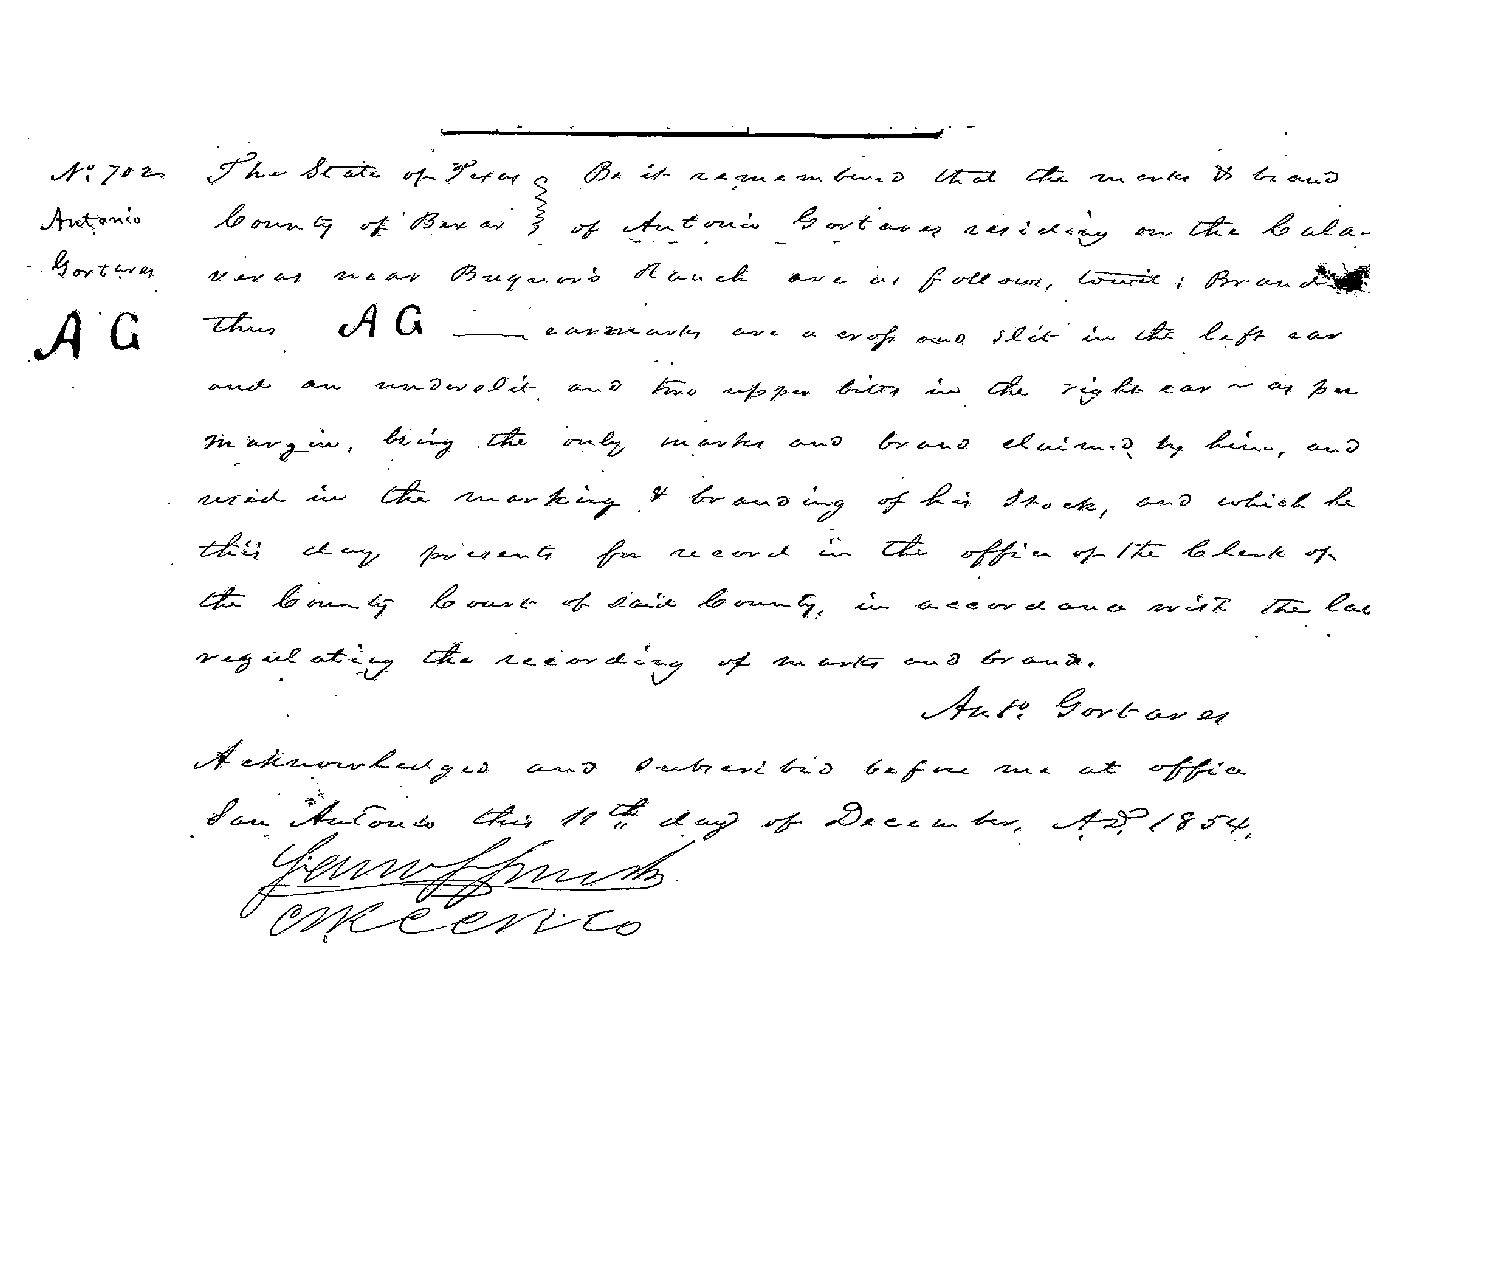 No. 702 The State of Texas Be it remembered that the marks & brand
Antonio County of Bexar of Antonio Gortares residing on the Cala-
Gortares veras near Buquor's Ranch are as follows, towit; Brand
A G thus A G earmarks are a crop and slit in the left ear
and an underslit and two upper bitts in the right ear ~ as per
margin, being the only marks and brand claimed by him, and
used in the marking & branding of his Stock, and which he
this day presents for record in the office of the Clerk of
the County Court of said County, in accordance with the law
regulating the recording of marks and brand.
Anto. Gortares
Acknowledged and subscribed before me at office
San Antonio this 11th day of December, A.D. 1854.